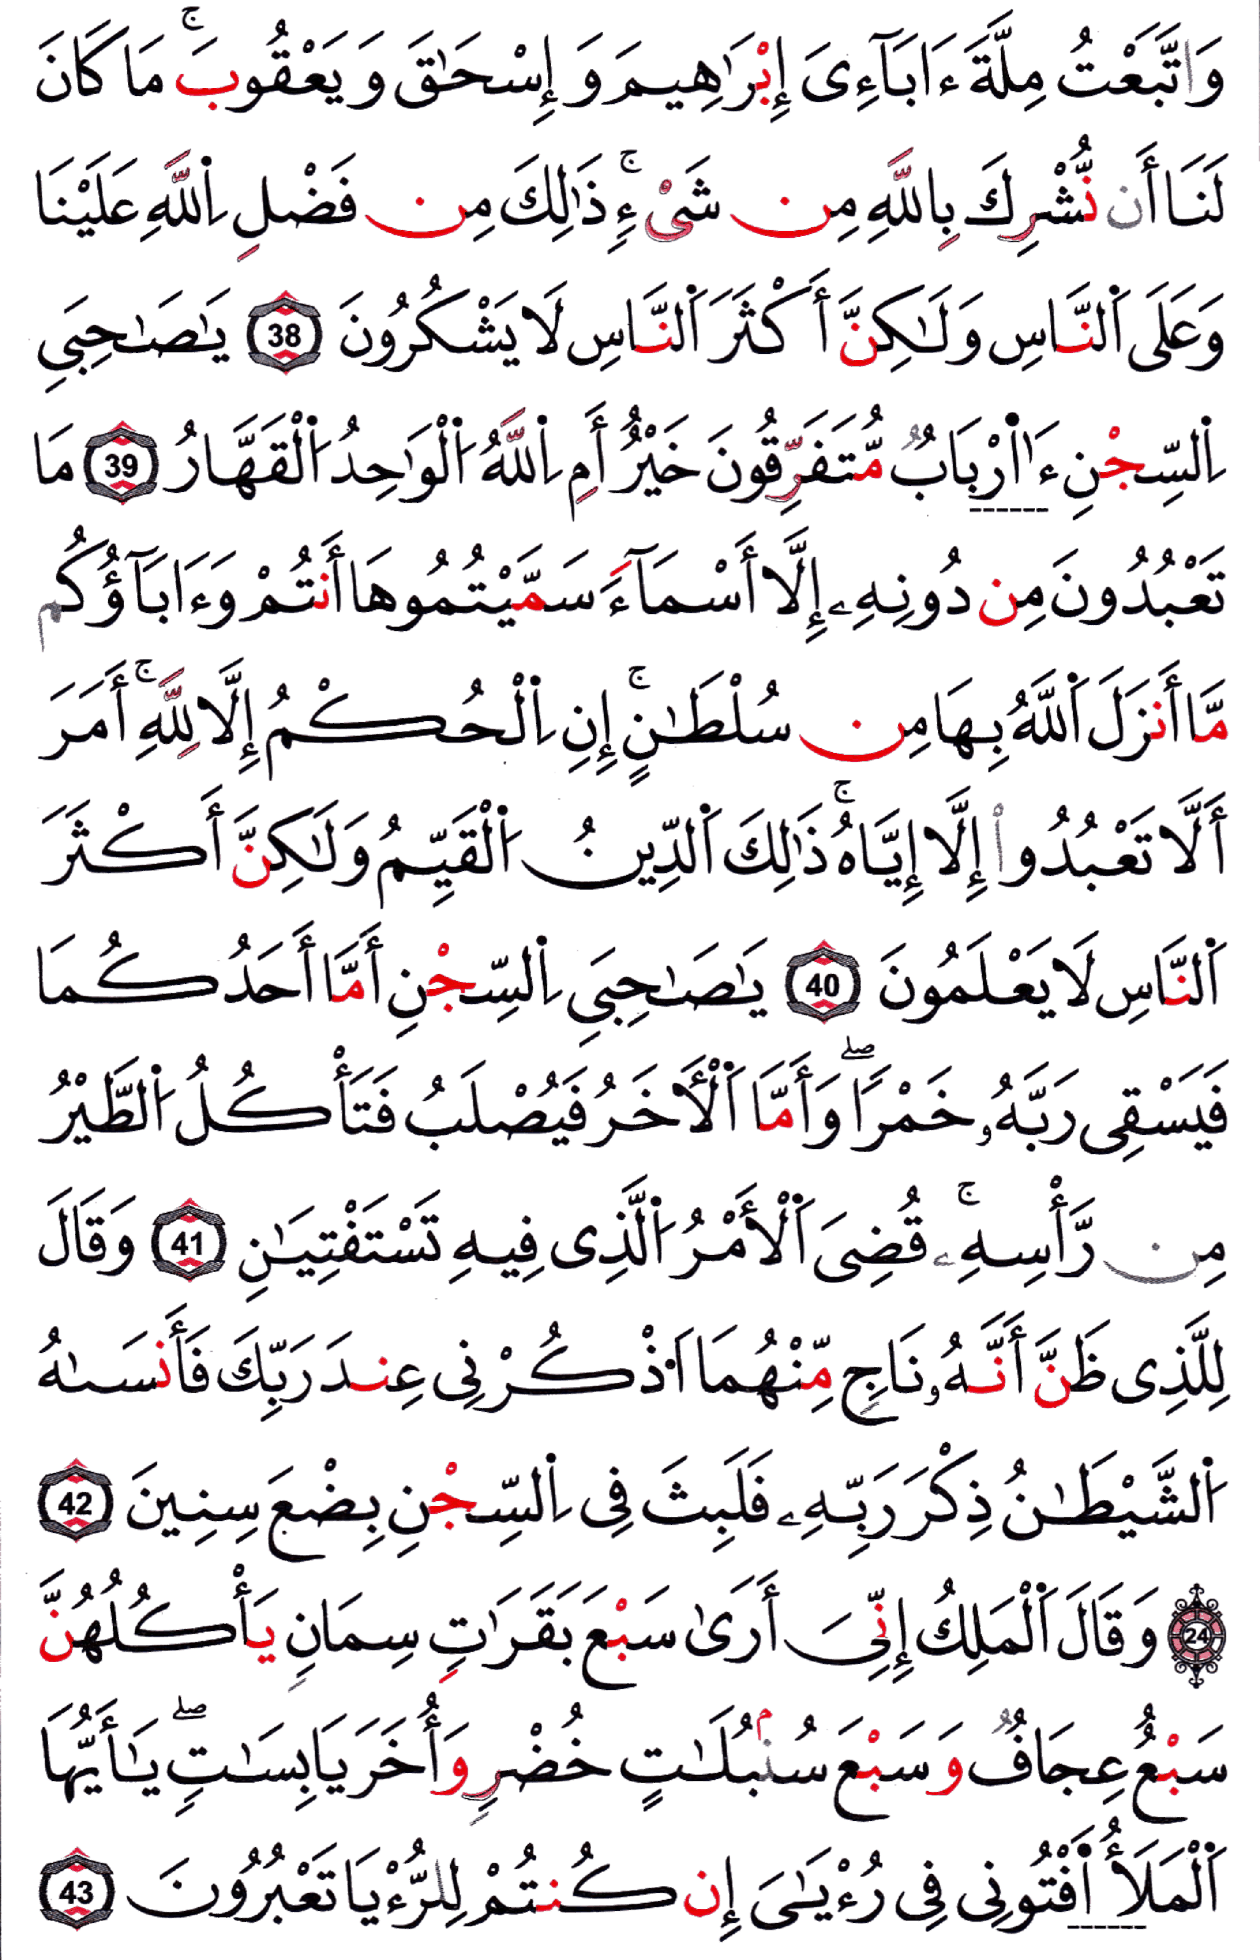 وَاتَّبَعْتُ مِلَّةَ ءَابَآءِىَ إِبْرَٰهِيمَ وَإِسْحَٰقَ وَيَعْقُوبَۚ مَا كَانَ
لَنَا أَن نُّشْرِكَ بِاللَّهِ مِن شَىْءٍۚ ذَٰلِكَ مِن فَضْلِ اِ۬للَّهِ عَلَيْنَا
وَعَلَى اَ۬لنَّاسِ وَلَٰكِنَّ أَكْثَرَ اَ۬لنَّاسِ لَا يَشْكُرُونَ 38 يَٰصَٰحِبَىِ
اِ۬لسِّجْنِ ءَا۬رْبَابٌ مُّتَفَرِّقُونَ خَيْرٌ أَمِ اِ۬للَّهُ اَ۬لْوَٰحِدُ اَ۬لْقَهَّارُ 39 مَا
تَعْبُدُونَ مِن دُونِهِۦ إِلَّا أَسْمَآءً سَمَّيْتُمُوهَا أَنتُمْ وَءَابَآؤُكُم
مَّا أَنزَلَ اَ۬للَّهُ بِهَا مِن سُلْطَٰنٍۚ إِنِ اِ۬لْحُكْمُ إِلَّا لِلَّهِۚ أَمَرَ
أَلَّا تَعْبُدُواْ إِلَّا إِيَّاهُۚ ذَٰلِكَ اَ۬لدِّينُ اَ۬لْقَيِّمُ وَلَٰكِنَّ أَكْثَرَ
اَ۬لنَّاسِ لَا يَعْلَمُونَ 40 يَٰصَٰحِبَىِ اِ۬لسِّجْنِ أَمَّا أَحَدُكُمَا
فَيَسْقِى رَبَّهُۥ خَمْرًاۖ وَأَمَّا اَ۬لْأَخَرُ فَيُصْلَبُ فَتَأْكُلُ اُ۬لطَّيْرُ
مِن رَّأْسِهِۦۚ قُضِىَ اَ۬لْأَمْرُ اُ۬لَّذِى فِيهِ تَسْتَفْتِيَٰنِ 41 وَقَالَ
لِلَّذِى ظَنَّ أَنَّهُۥ نَاجٍ مِّنْهُمَا اَ۟ذْكُرْنِى عِندَ رَبِّكَ فَأَنسَىٰهُ
اُ۬لشَّيْطَٰنُ ذِكْرَ رَبِّهِۦ فَلَبِثَ فِى اِ۬لسِّجْنِ بِضْعَ سِنِينَ 42
24 وَقَالَ اَ۬لْمَلِكُ إِنِّىَ أَرَىٰ سَبْعَ بَقَرَٰتٍ سِمَانٍ يَأْكُلُهُنَّ
سَبْعٌ عِجَافٌ وَسَبْعَ سُنۢبُلَٰتٍ خُضْرٍ وَأُخَرَ يَابِسَٰتٍۖ يَٰأَيُّهَا
اَ۬لْمَلَأُ اَ۬فْتُونِى فِى رُءْيَٰىَ إِن كُنتُمْ لِلرُّءْيَا تَعْبُرُونَ 43